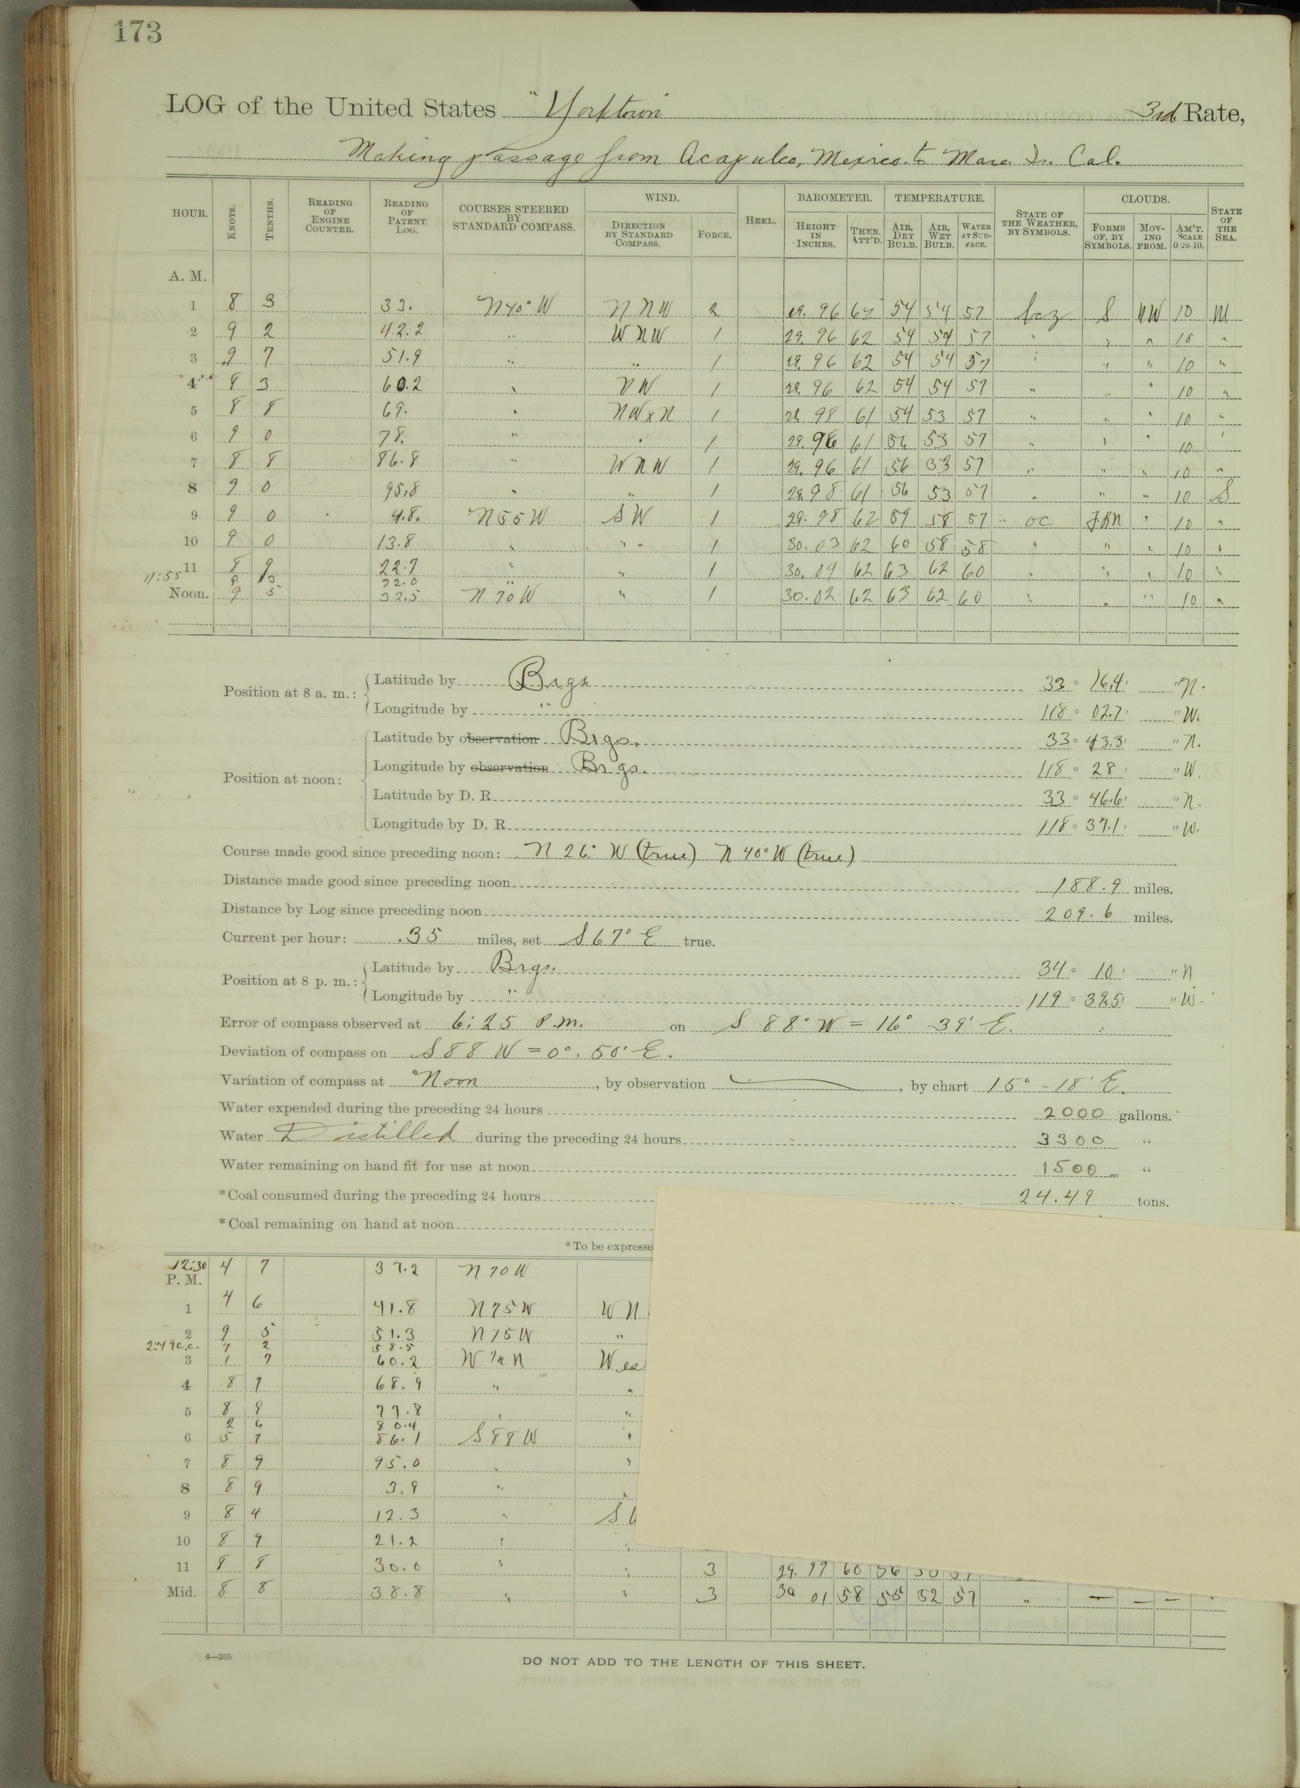 173
LOG of the United States "Yorktown" 3rd Rate,
Making passage from Acapulco, Mexico. to Mare Is. Cal.
HOUR. KNOTS. TENTHS. READING OF ENGINE COUNTER. READING OF PATENT LOG. COURSES STEERED BY STANDARD COMPASS. WIND. DIRECTION BY STANDARD COMPASS. FORCE. HEEL. BAROMETER. HEIGHT IN INCHES. THER. ATT'D. TEMPERATURE. AIR, DRY BULB. AIR, WET BULB. WATER AT SURFACE. STATE OF THE WEATHER, BY SYMBOLS. CLOUDS. FORMS OF, BY SYMBOLS. MOVING FROM. AM'T. SCALE 0 TO 10. STATE OF THE SEA.
A. M.
1 8 3 33. N40°W NNW 2 29.96 62 54 54 57 bcz S NW 10 M
2 9 2 42.2 " WNW 1 29.96 62 54 54 57 " " " 10 "
3 9 7 51.9 " 1 29.96 62 54 54 57 " " " 10 "
4 8 3 60.2 " NW 1 29.96 62 54 54 57 " " " 10 "
5 8 8 69. " NWxN 1 29.98 61 54 53 57 " " " 10 "
6 9 0 78. " " 1 29.96 61 56 53 57 " " " 10 "
7 8 8 86.8 " WNW 1 29.96 61 56 53 57 " " " 10 "
8 9 0 95.8 " " 1 29.98 61 56 53 57 " " " 10 S
9 9 0 4.8. N55W SW 1 29.98 62 59 58 57 oc " 10 "
10 9 0 13.8 " " 1 30.03 62 60 58 58 " " " 10 "
11 8 9 22.7 " " 1 30.04 62 63 62 60 " " " 10 "
11:55 32.0 "
Noon. 9 5 32.5 N70W " 1 30.02 62 63 62 60 " " " 10 "
Position at 8 a. m.: Latitude by Brgs 33° 16.4' " N.
Longitude by " 118° 02.7' " W.
Position at noon: Latitude by observation Brgs. 33° 43.3' " N.
Longitude by observation Brgs. 118° 28' " W.
Latitude by D. R. 33° 46.6' " N.
Longitude by D. R. 118° 37.1' " W.
Course made good since preceding noon: N 26° W (true) N 40° W (true)
Distance made good since preceding noon 188.9 miles.
Distance by Log since preceding noon 209.6 miles.
Current per hour: .35 miles, set S 67° E true.
Position at 8 p. m.: Latitude by Brgs. 34° 10' " N
Longitude by " 119° 39.5' " W.
Error of compass observed at 6:25 P.M. on S 88° W = 16° 39' E.
Deviation of compass on S 88 W = 0°, 50' E.
Variation of compass at Noon, by observation , by chart 15° - 18' E.
Water expended during the preceding 24 hours 2000 gallons.
Water Distilled during the preceding 24 hours 3300 "
Water remaining on hand fit for use at noon 1500 "
*Coal consumed during the preceding 24 hours 24.49 tons.
*Coal remaining on hand at noon
*To be expresse
12:30 4 7 37.2 N70W
P. M.
1 4 6 41.8 N75W WN
2 9 5 51.3 N75W "
7 2 58.5
3 1 7 60.2 Wes
4 8 7 68.9 " "
5 8 9 77.8 " "
2 6 80.4
6 5 7 86.1 S88W "
7 8 9 95.0 " "
8 8 9 3.9 " "
9 8 4 12.3 " S
10 8 9 21.2 " "
11 8 8 30.0 " " 3 29.97 60 56 50 57
Mid. 8 8 38.8 " " 3 30 01 58 55 52 57 " — — —
4—265
DO NOT ADD TO THE LENGTH OF THIS SHEET.